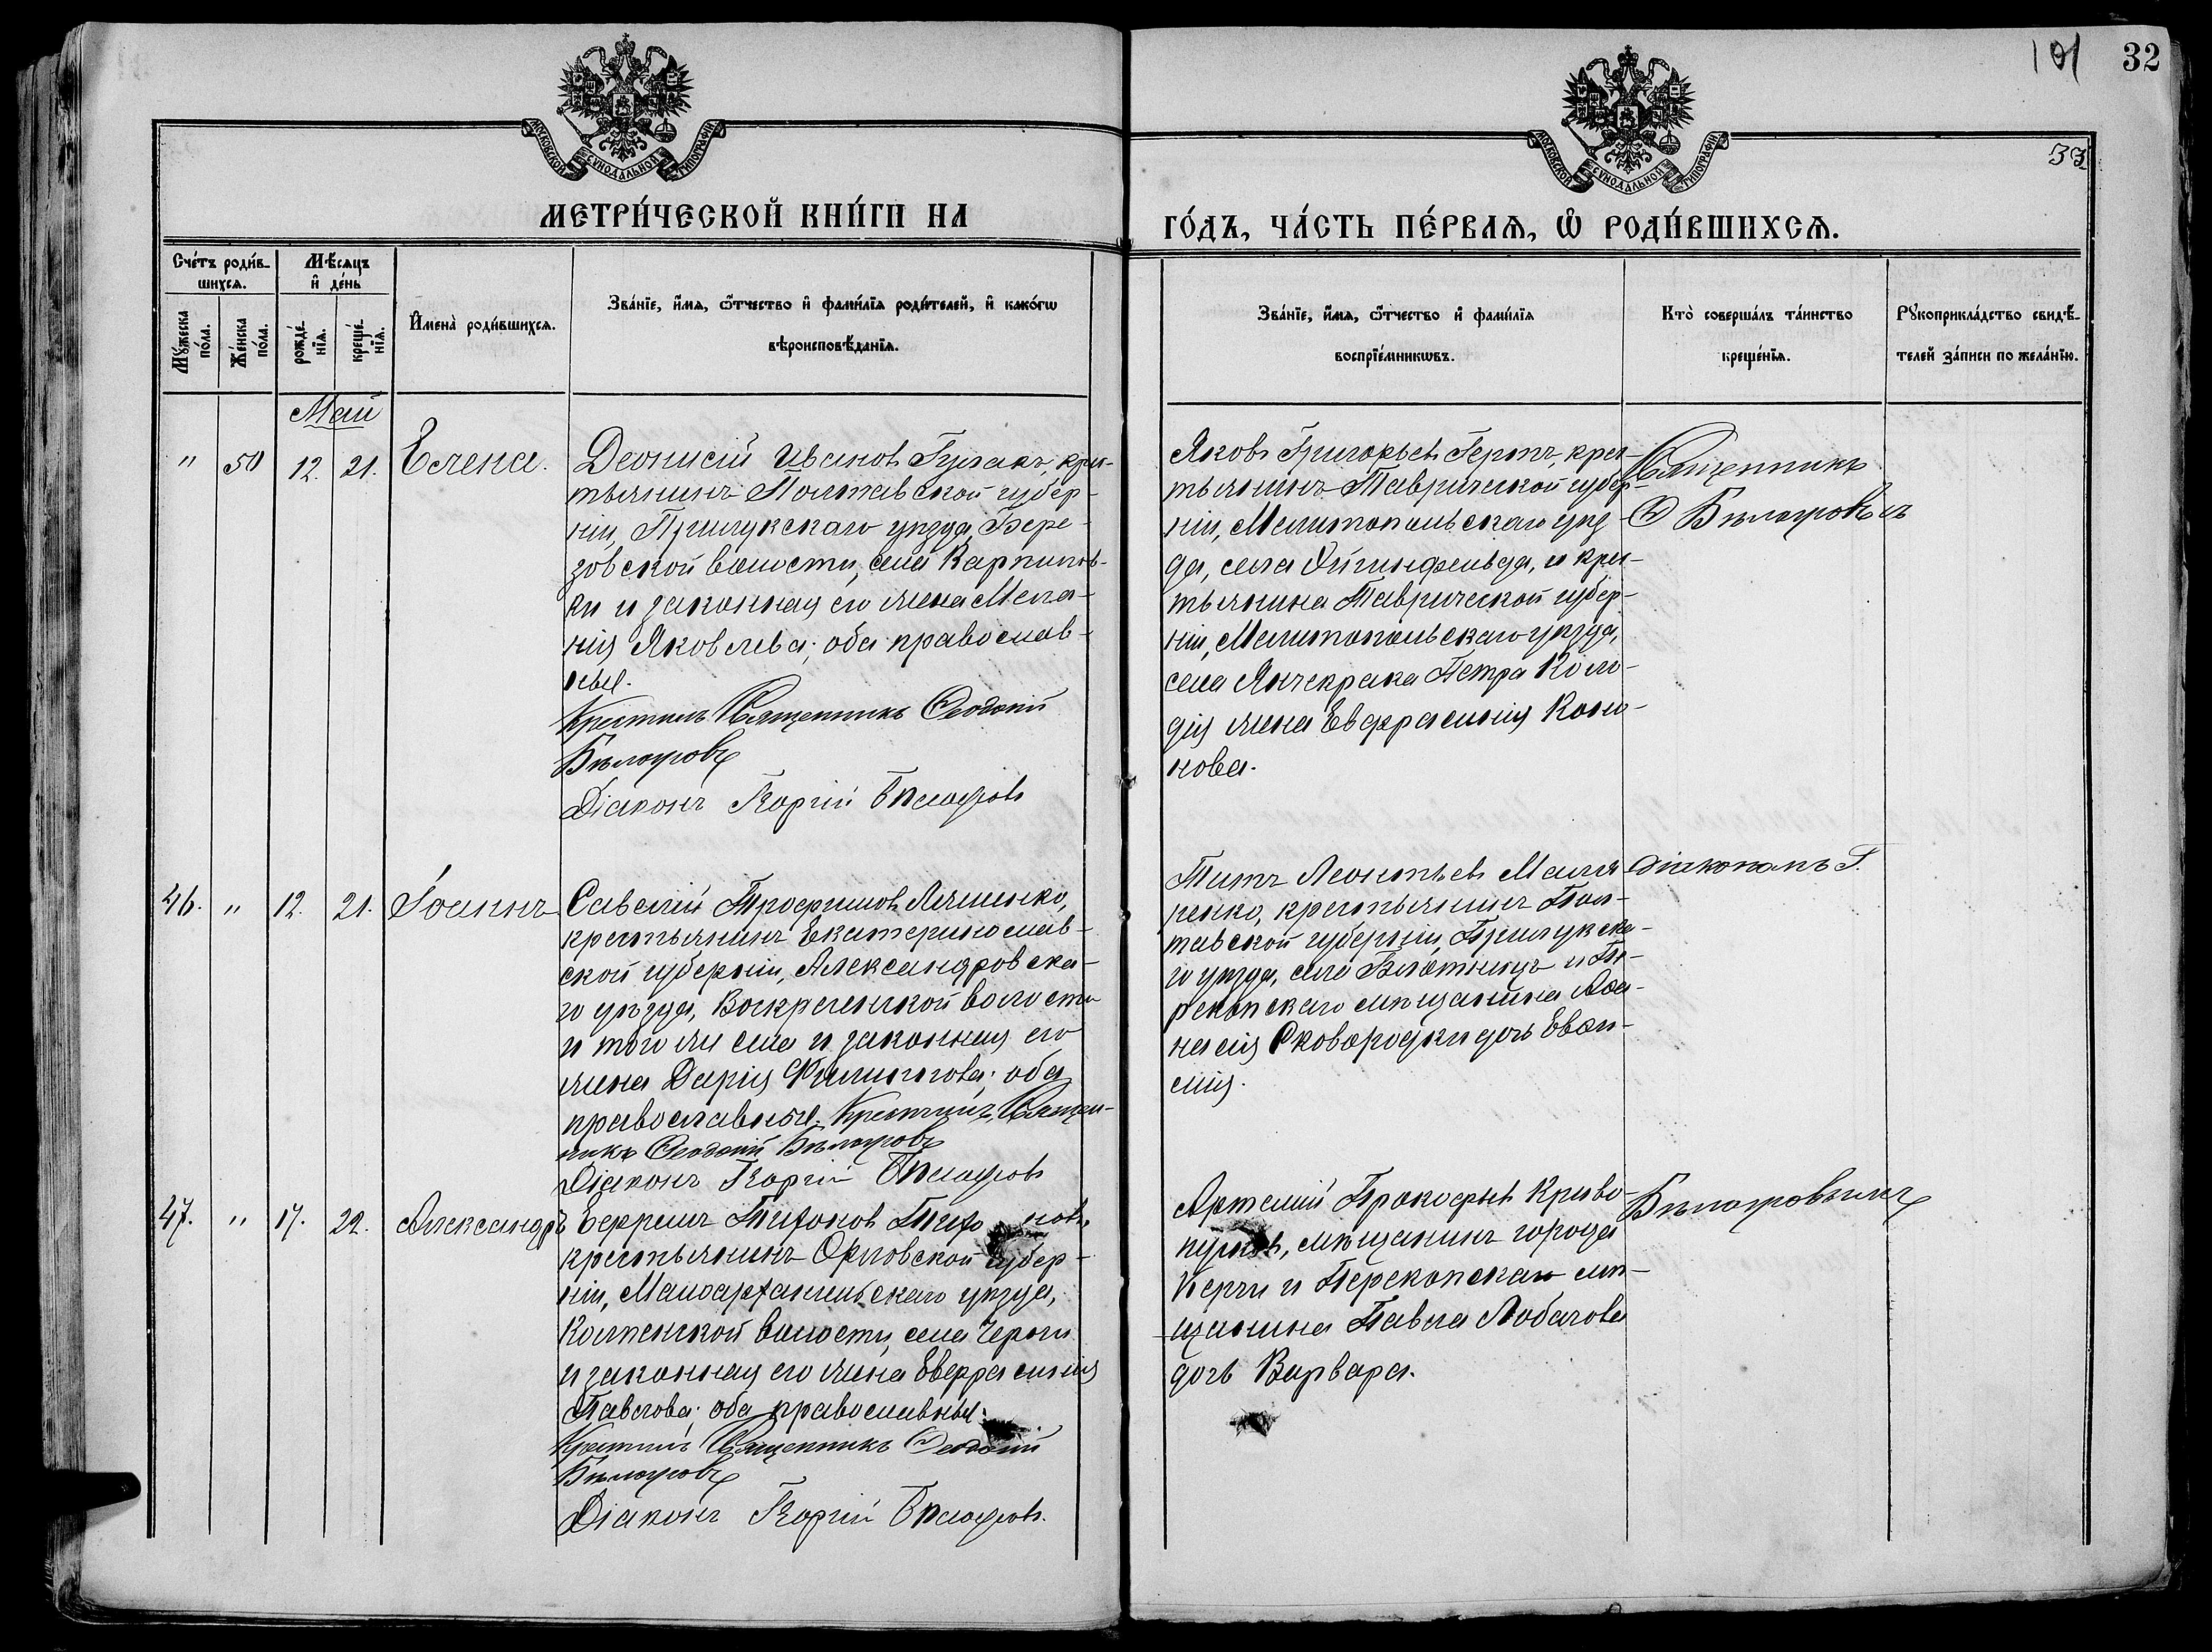 101 32
33
МОСКОВСКОЙ СѴНОДАЛЬНОЙ ТИПОГРАФІИ
МОСКОВСКОЙ СѴНОДАЛЬНОЙ ТИПОГРАФІИ
МЕТРИ́ЧЕСКОЙ КНИ́ГИ НА
ГО́ДЪ, ЧА́СТЬ ПЕ́РВАѦ, Ѿ РОДИ́ВШИХСѦ.
Сче́тъ роди́в-
шихсѧ.
Мꙋ́жеска по́ла.
Же́нска по́ла.
Мѣ́сѧцъ
и҆ де́нь
рожде́-
нїѧ.
креще́-
нїѧ.
И҆мена̀ роди́вшихсѧ.
Зва́нїе, и҆́мѧ, ѻ҆́тчество и҆ фами́лїѧ роди́телей, и҆ како́гѡ
вѣроисповѣ́данїѧ.
Зва́нїе, и҆́мѧ, ѻ҆́тчество и҆ фами́лїѧ
воспрїе́мникѡвъ.
Кто̀ соверша́лъ та́инство
креще́нїѧ.
Рꙋкоприкла́дство свидѣ́-
телей за́писи по жела́нїю.
Май
" 50 12. 21. Елена.
Деонисій Ивановъ Гузакъ, крес-
тьянинъ Полтавской губер-
ніи, Прилукскаго уѣзда, Бере-
зовской волости, села Карпилов-
ки и законная его жена Мела-
нія Яковлева; оба православ-
ные.
Крестилъ Священникъ Ѳеодосій
Бѣлогровъ
Діаконъ Георгій Бѣлогровъ
Яковъ Григорьевъ Гертъ, крес-
тьянинъ Таврической губер-
ніи, Мелитопольскаго уѣз-
да, села и крес-
тьянина Таврической губер-
ніи, Мелитопольскаго уѣзда,
села Янчекрака Петра
жена Евфросинія
нова.
Священникъ
Ѳ Бѣлогровъ
46. " 12. 21. Іоаннъ
Савелій Трофимовъ Ляшенко,
крестьянинъ Екатеринослав-
ской губерніи, Александровска-
го уѣзда, Воскресенской волости
и того же села и законная его
жена Дарія Филиппова; оба
православные. Крестилъ Священ-
никъ Ѳеодосій Бѣлогровъ
Діаконъ Георгій Бѣлогровъ
Титъ Леонтьевъ Маля-
ренко, крестьянинъ Пол-
тавской губерніи, Прилукска-
го уѣзда, села и Пе-
рекопскаго мѣщанина Аѳа-
насія Сковородки дочь Евѳи-
мія.
діакономъ Г.
47. " 17. 22. Александръ
Ефремъ Тихоновъ Тихоновъ
крестьянинъ Орловской губер-
ніи, Малоархангельскаго уѣзда,
волости, села
и законная его жена Евфросинія
Павлова; оба православные.
Крестилъ Священникъ Ѳеодосій
Бѣлогровъ
Діаконъ Георгій Бѣлогровъ.
Артемій Прокофьевъ Криво-
мѣщанинъ города
Керчи и Перекопскаго мѣ-
щанина Павла Лобачова
дочь Варвара.
Бѣлогровымъ